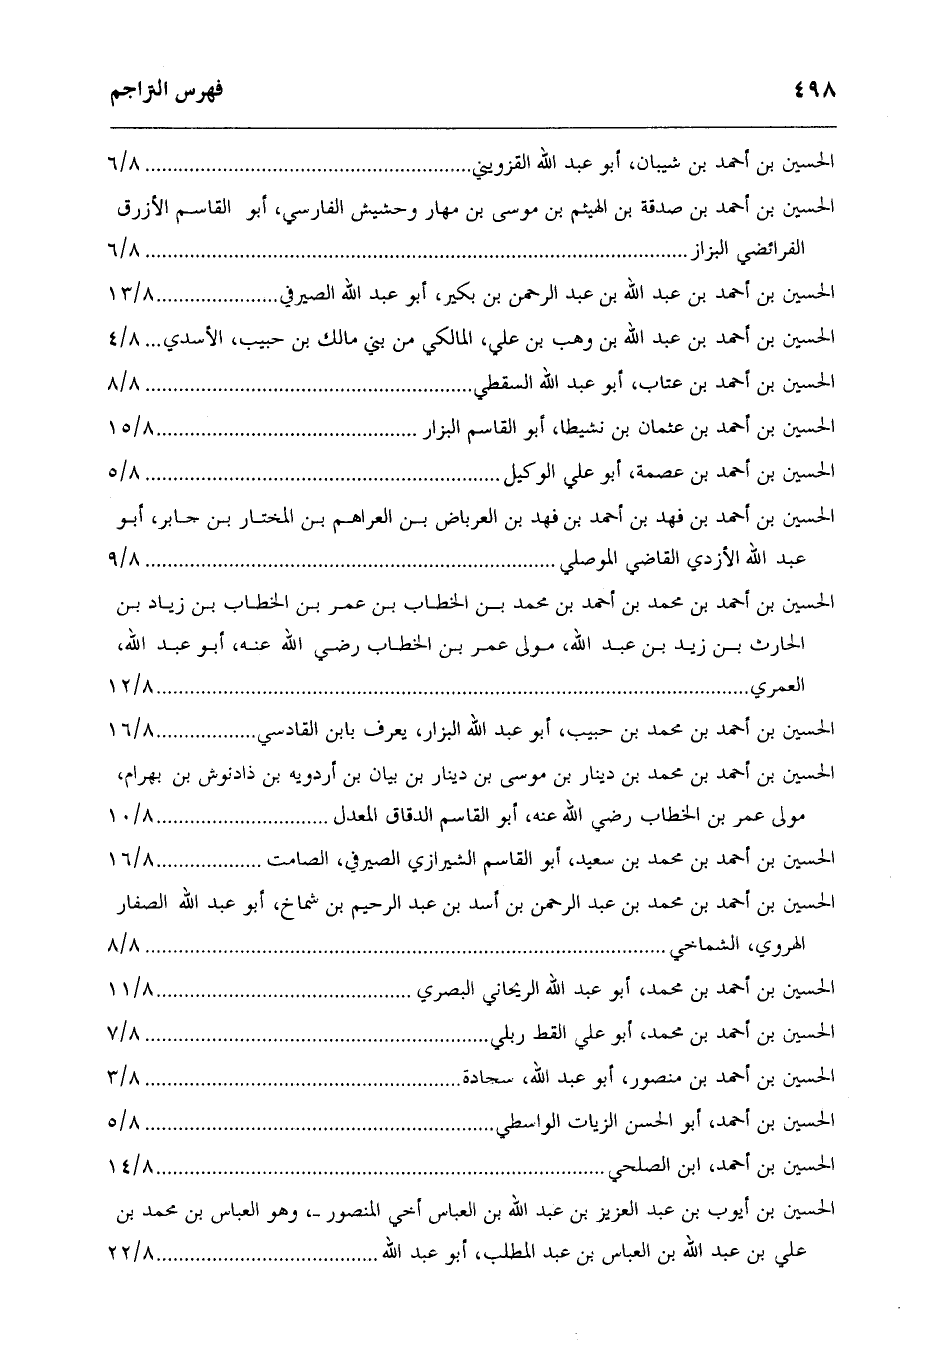 ٤٩٨ فهرس التراجم
الحسين بن أحمد بن شيبان، أبو عبد الله القزويني................................................ ٦/٨
الحسين بن أحمد بن صدقة بن الهيثم بن موسى بن مهار وحشيش الفارسي، أبو القاسم الأزرق
الفرائضي البزاز................................................ ٦/٨
الحسين بن أحمد بن عبد الله بن عبد الرحمن بن بكير، أبو عبد الله الصيرفي...................... ١٣/٨
الحسين بن أحمد بن عبد الله بن وهب بن علي، المالكي من بني مالك بن حبيب، الأسدي... ٤/٨
الحسين بن أحمد بن عتاب، أبو عبد الله السقطي................................................ ٨/٨
الحسين بن أحمد بن عثمان بن نشيطا، أبو القاسم البزار ................................................ ١٥/٨
الحسين بن أحمد بن عصمة، أبو علي الوكيل................................................ ٥/٨
الحسين بن أحمد بن فهد بن أحمد بن فهد بن العرباض بن العراهم بن المختار بن حابر، أبو
عبد الله الأزدي القاضي الموصلي ................................................ ٩/٨
الحسين بن أحمد بن محمد بن أحمد بن محمد بن الخطاب بن عمر بن الخطاب بن زياد بن
الحارث بن زيد بن عبد الله، مولى عمر بن الخطاب رضي الله عنه، أبو عبد الله،
العمري................................................ ١٢/٨
الحسين بن أحمد بن محمد بن حبيب، أبو عبد الله البزار، يعرف بابن القادسي.................. ١٦/٨
الحسين بن أحمد بن محمد بن دينار بن موسى بن دينار بن بيان بن أردويه بن ذادنوش بن بهرام،
مولى عمر بن الخطاب رضي الله عنه، أبو القاسم الدقاق المعدل ............................... ١٠/٨
الحسين بن أحمد بن محمد بن سعيد، أبو القاسم الشيرازي الصيرفي، الصامت ................... ١٦/٨
الحسين بن أحمد بن محمد بن عبد الرحمن بن أسد بن عبد الرحيم بن شماخ، أبو عبد الله الصفار
الهروي، الشماخي ................................................ ٨/٨
الحسين بن أحمد بن محمد، أبو عبد الله الريحاني البصري ................................................ ١١/٨
الحسين بن أحمد بن محمد، أبو علي القط ربلي................................................ ٧/٨
الحسين بن أحمد بن منصور، أبو عبد الله، سجادة................................................ ٣/٨
الحسين بن أحمد، أبو الحسن الزيات الواسطي................................................ ٥/٨
الحسين بن أحمد، ابن الصلحي ................................................ ١٤/٨
الحسين بن أيوب بن عبد العزيز بن عبد الله بن العباس أخي المنصور -، وهو العباس بن محمد بن
علي بن عبد الله بن العباس بن عبد المطلب، أبو عبد الله ........................................ ٢٢/٨